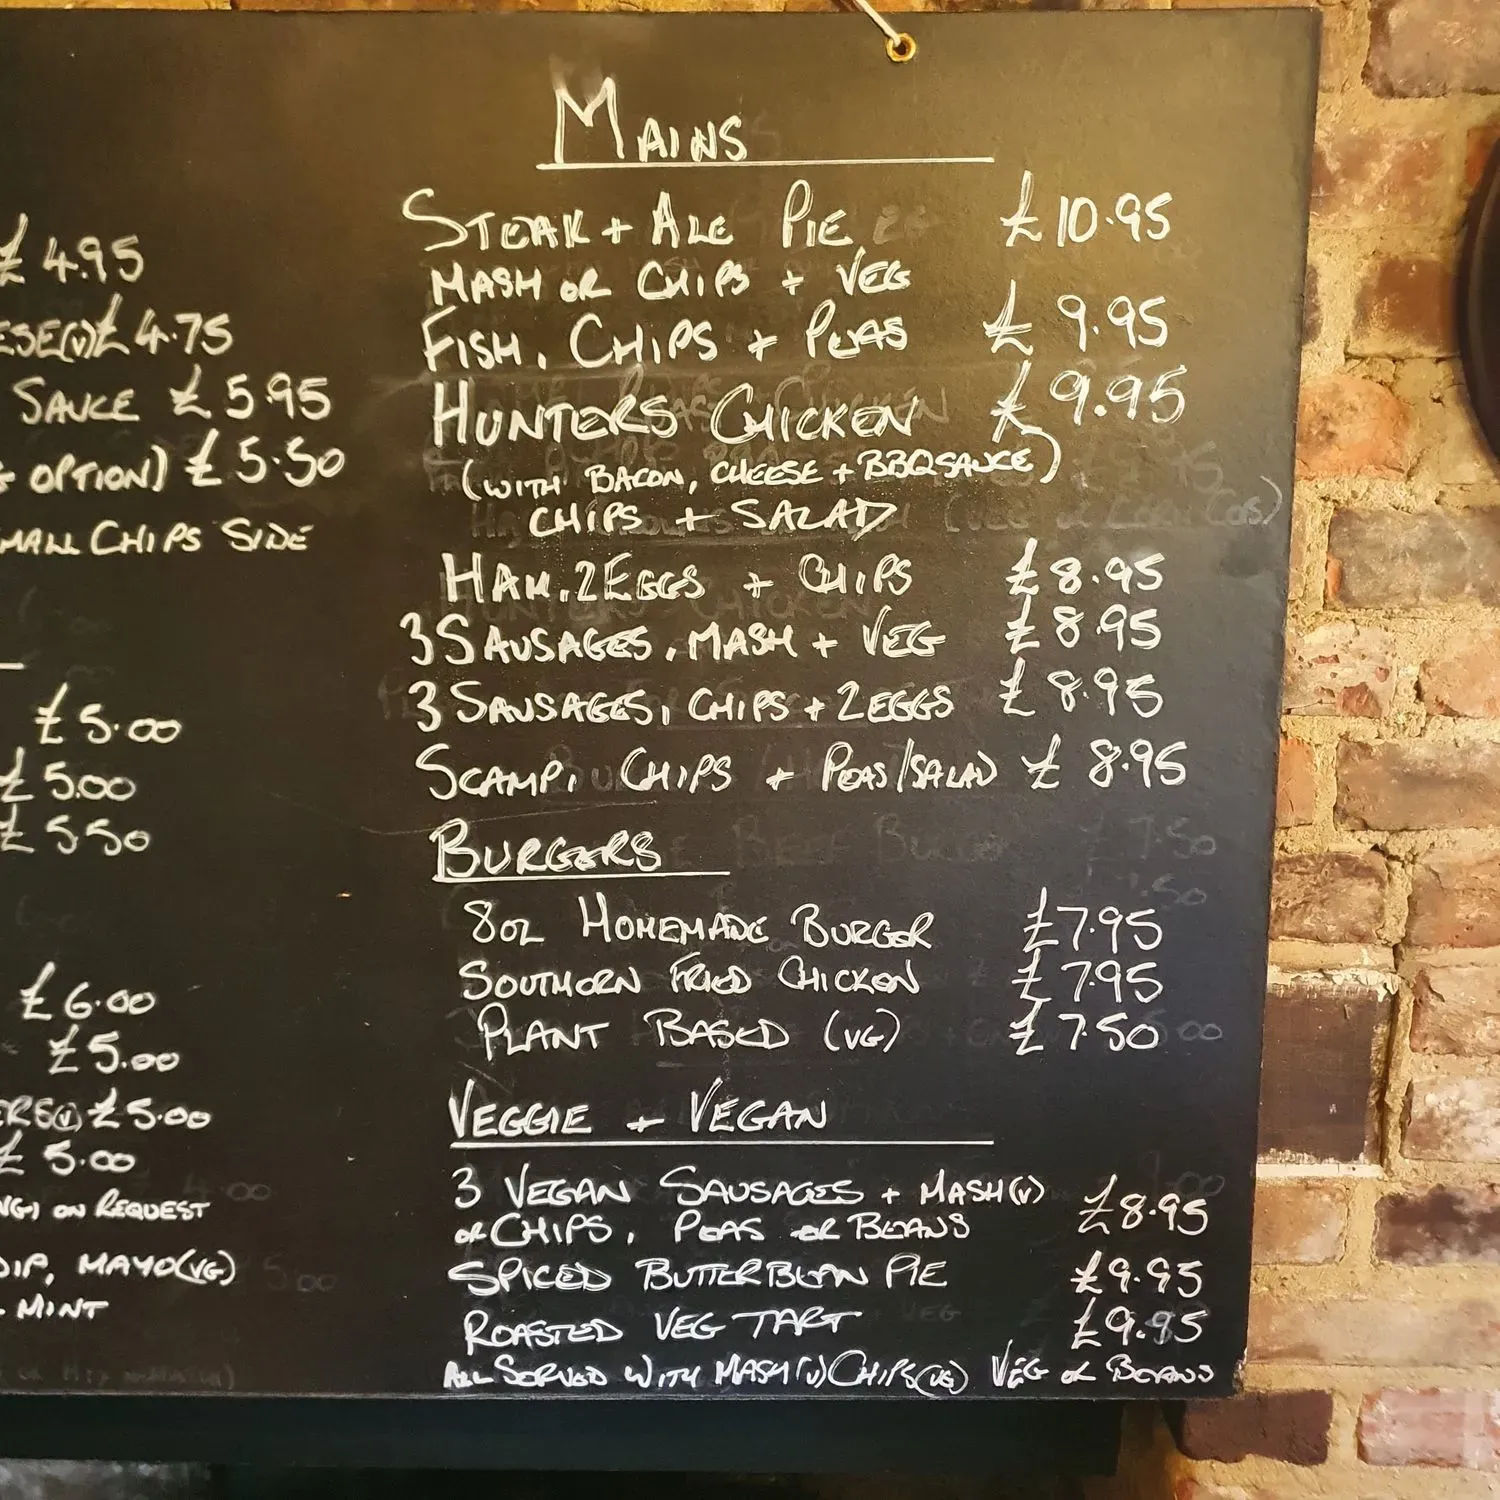 £4.95
ESE(V) £4.75
SAUCE £5.95
G OPTION) £5.50
MALL CHIPS SIDE
£5.00
£5.00
£5.50
£6.00
£5.00
ERS(V) £5.00
£5.00
VG) ON REQUEST
DIP, MAYO(VG)
MINT
MAINS
STEAK + ALE PIE, £10.95
MASH OR CHIPS + VEG
FISH, CHIPS + PEAS £9.95
HUNTERS CHICKEN £9.95
(WITH BACON, CHEESE + BBQ SAUCE)
CHIPS + SALAD
HAM, 2 EGGS + CHIPS £8.95
3 SAUSAGES, MASH + VEG £8.95
3 SAUSAGES, CHIPS + 2 EGGS £8.95
SCAMPI CHIPS + PEAS/SALAD £8.95
BURGERS
8OZ HOMEMADE BURGER £7.95
SOUTHERN FRIED CHICKEN £7.95
PLANT BASED (VG) £7.50
VEGGIE + VEGAN
3 VEGAN SAUSAGES + MASH(V)
OR CHIPS, PEAS OR BEANS £8.95
SPICED BUTTERBEAN PIE £9.95
ROASTED VEG TART £9.95
ALL SERVED WITH MASH(V) CHIPS(VG) VEG OR BEANS